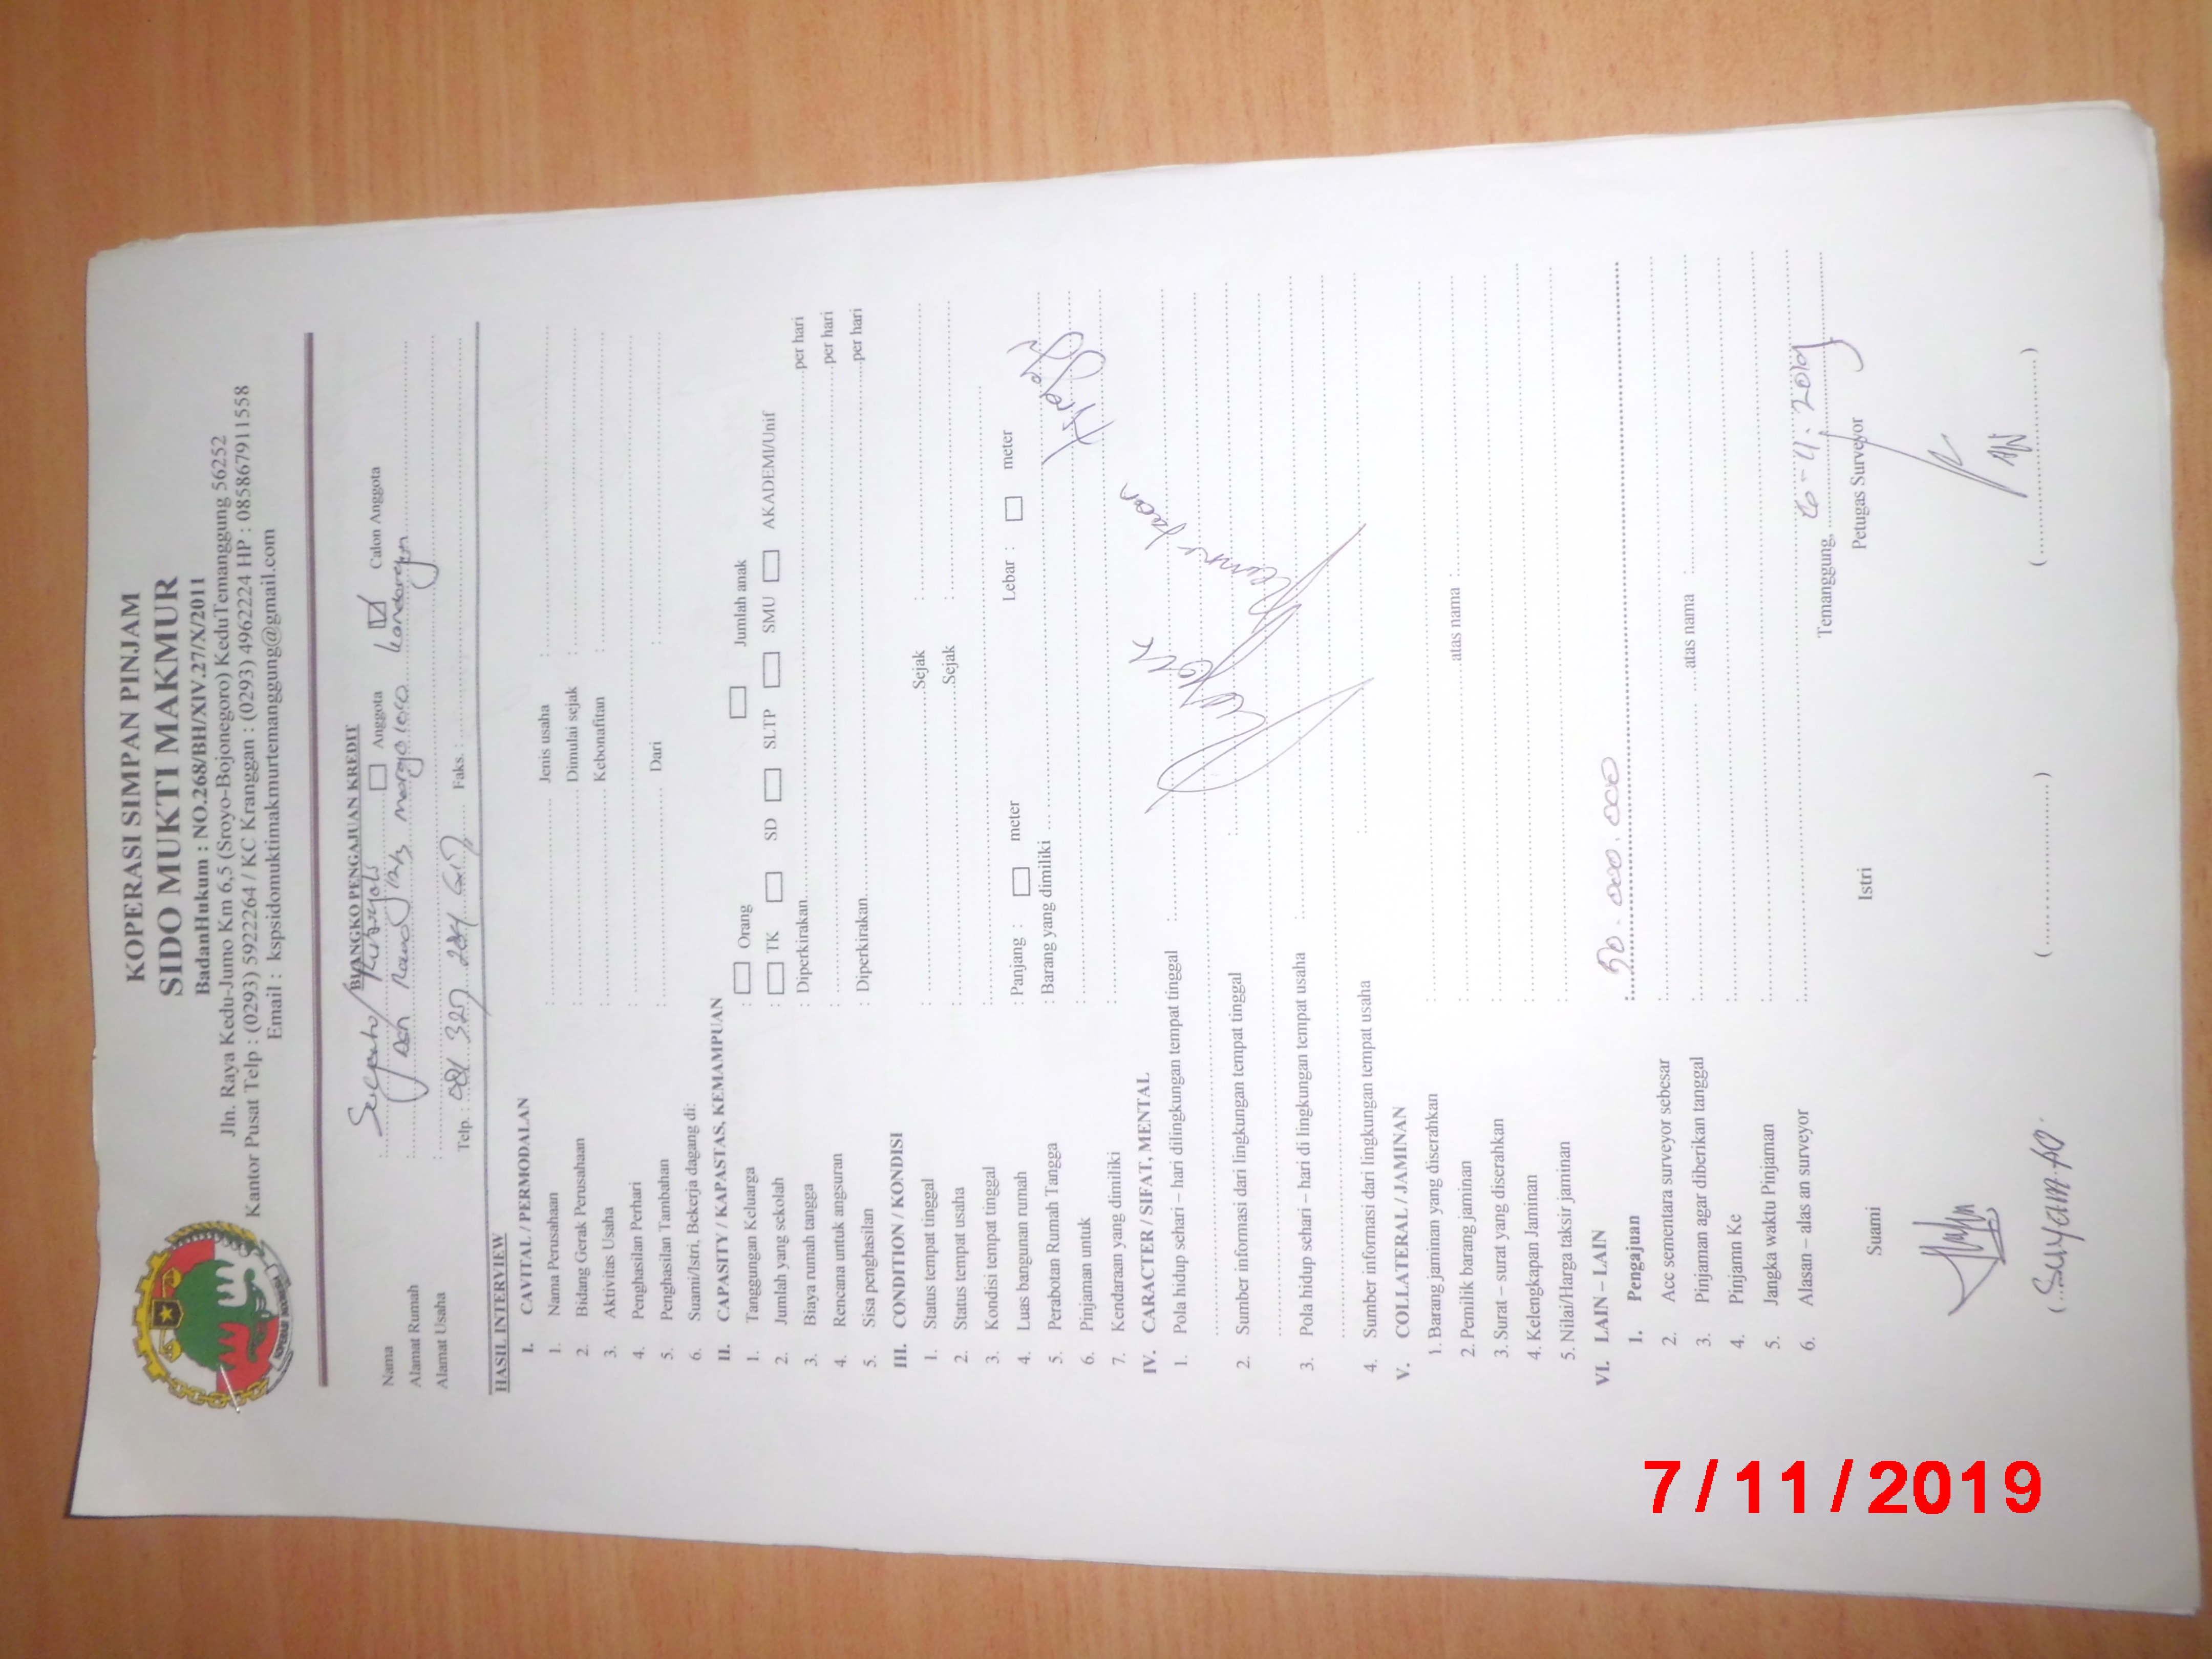 KOPERASI SIMPAN PINJAM
SIDO MUKTI MAKMUR
BadanHukum : NO.268/BH/XIV.27/X/2011
Jln. Raya Kedu-Jumo Km 6,5 (Sroyo-Bojonegoro) KeduTemanggung 56252
Kantor Pusat Telp : (0293) 5922264 / KC Kranggan : (0293) 4962224 HP : 085867911558
Email : kspsidomuktimakmurtemanggung@gmail.com
BLANGKO PENGAJUAN KREDIT
Nama : Anggota Calon Anggota
Alamat Rumah :
Alamat Usaha :
Telp. : Faks. :
HASIL INTERVIEW
I. CAVITAL / PERMODALAN
1. Nama Perusahaan : Jenis usaha :
2. Bidang Gerak Perusahaan : Dimulai sejak :
3. Aktivitas Usaha : Kebonafitan :
4. Penghasilan Perhari :
5. Penghasilan Tambahan : Dari :
6. Suami/Istri, Bekerja dagang di:
II. CAPASITY / KAPASTAS, KEMAMPUAN
1. Tanggungan Keluarga : Orang Jumlah anak
2. Jumlah yang sekolah : TK SD SLTP SMU AKADEMI/Unif
3. Biaya rumah tangga : Diperkirakan per hari
4. Rencana untuk angsuran : per hari
5. Sisa penghasilan : Diperkirakan per hari
III. CONDITION / KONDISI
1. Status tempat tinggal : Sejak :
2. Status tempat usaha : Sejak :
3. Kondisi tempat tinggal :
4. Luas bangunan rumah : Panjang : meter Lebar : meter
5. Perabotan Rumah Tangga : Barang yang dimiliki
6. Pinjaman untuk :
7. Kendaraan yang dimiliki :
IV. CARACTER / SIFAT, MENTAL
1. Pola hidup sehari – hari dilingkungan tempat tinggal :
2. Sumber informasi dari lingkungan tempat tinggal :
3. Pola hidup sehari – hari di lingkungan tempat usaha :
4. Sumber informasi dari lingkungan tempat usaha :
V. COLLATERAL / JAMINAN
1. Barang jaminan yang diserahkan :
2. Pemilik barang jaminan : atas nama :
3. Surat – surat yang diserahkan :
4. Kelengkapan Jaminan :
5. Nilai/Harga taksir jaminan :
VI. LAIN – LAIN
1. Pengajuan : 50.000.000
2. Acc sementara surveyor sebesar :
3. Pinjaman agar diberikan tanggal : atas nama :
4. Pinjamn Ke :
5. Jangka waktu Pinjaman :
6. Alasan – alas an surveyor :
Temanggung, 6-11-2019
Suami Istri Petugas Surveyor
7/11/2019